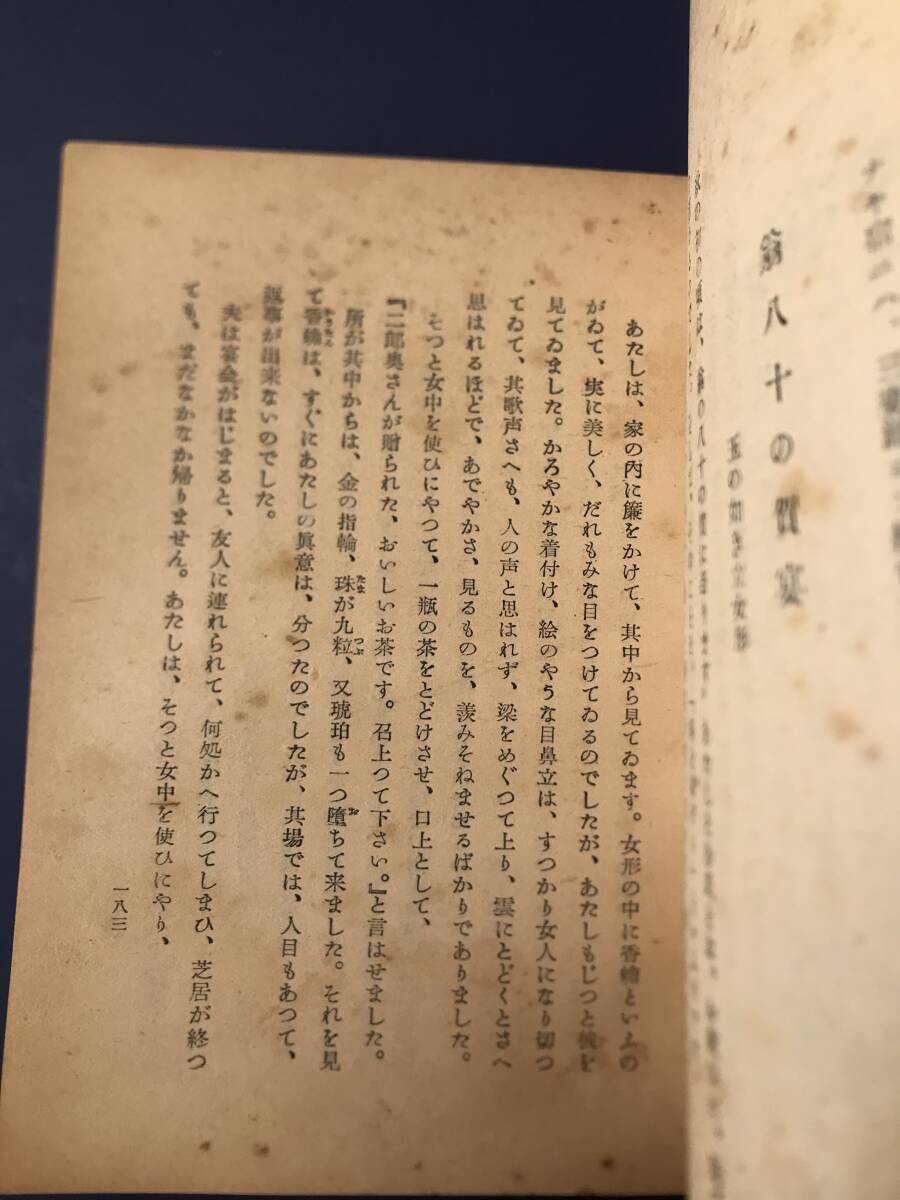 翁八十の賀宴
玉の如き立女形
あたしは、家の內に簾をかけて、其中から見てゐます。女形の中に香蟾といふの
がゐて、実に美しく、だれもみな目をつけてゐるのでしたが、あたしもじつと彼を
見てゐました。かろやかな着付け、絵のやうな目鼻立は、すつかり女人になり切つ
てゐて、其歌声さへも、人の声と思はれず、梁をめぐつて上り、雲にとどくとさへ
思はれるほどで、あでやかさ、見るものを、羨みそねませるばかりでありました。
そつと女中を使ひにやつて、一瓶の茶をとどけさせ、口上として、
『二郎奥さんが贈られた、おいしいお茶です。召上つて下さい。』と言はせました。
所が其中からは、金の指輪、珠が九粒、又琥珀も一つ墮ちて来ました。それを見
て香蟾は、すぐにあたしの眞意は、分つたのでしたが、其場では、人目もあつて、
返事が出来ないのでした。
夫は宴会がはじまると、友人に連れられて、何処かへ行つてしまひ、芝居が終つ
ても、まだなかなか帰りません。あたしは、そつと女中を使ひにやり、
一八三